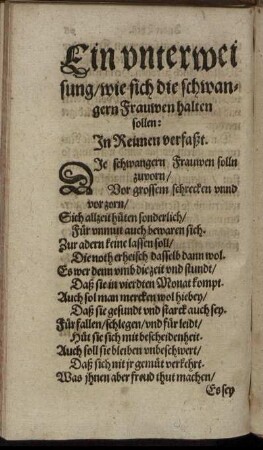 Ein vnterwei
sung/wie sich die schwan-
gern Frauwen halten
sollen:
In Reimen verfaßt.
DIe schwangern Frauwen solln
zuvorn/
Vor grossem schrecken vnnd
vor zorn/
Sich allzeit hüten sonderlich/
Für vnmut auch bewaren sich.
Zur adern keine lassen soll/
Die noth erheisch dasselb dann wol.
Es wer denn vmb die zeit vnd stundt/
Daß sie in vierdten Monat kompt.
Auch sol man mercken wol hiebey/
Daß sie gesundt vnd starck auch sey.
Für fallen/schlegen/vnd für leidt/
Hüt sie sich mit bescheidenheit.
Auch soll sie bleiben vnbeschwert/
Daß sich nit jr gemüt verkehrt.
Was jhnen aber freud thut machen/
Es sey